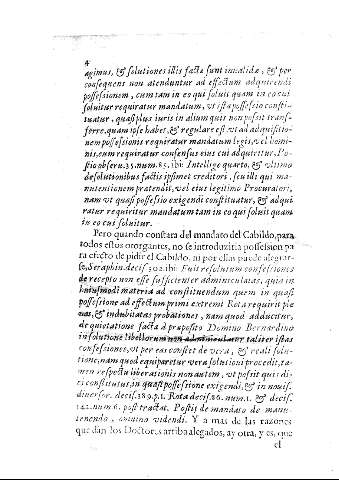 4
agimus, & solutiones illis factæ sunt inualidæ, & per
consequens non atenduntur ad effectum adquirendi
possessionem, cum tam in eo qui soluit quam in eo cui
soluitur requiratur mandatum, vt ista possessio consti-
tuatur, quasi plus iuris in alium quis non possit trans-
ferre, quam ipse habet, & regulare est vt ad adquisitio-
nem possessionis requiratur mandatum legis, vel homi-
nis, cum requiratur consensus eius cui adquiretur. Po-
stio obseru. 35. num. 85. ibi: Intellige quarto, & vltimo
de solutionibus factis ipsimet creditori, seu illi qui ma-
nutentionem pretendit, vel eius legitimo Procuratori,
nam vt quasi possessio exigendi constituatur, & adqui
ratur requiritur mandatum tam in eo qui soluit quam
in eo cui soluitur.
Pero quando constara del mandato del Cabildo, para
todos estos otorgantes, no se introduziria possession pa
ra efecto de pidir el Cabildo, ni por ellas puede alegar-
se, Seraphin. decis. 302. ibi: Fuit resolutum confessiones
de recepto non esse sufficienter adminiculatas, quia in
huiusmodi materia ad constituendum quem in quasi
possessione ad effectum primi extremi Rota requirit ple
nas, & indubitatas probationes, nam quod adducitur,
de quotatione facta à proposito Domino Bernardino
in solutione libellorum non adminiculatur taliter istas
confessiones, vt per eas constet de vera, & reali solu-
tione, nam quod equiparetur vera solutioni procedit, ta-
men respectu liberationis non autem, vt possit quis di-
ci constitutus, in quasi possessione exigendi, & in nouis.
diuersor. decis. 389. p. 1. Rota decis. 26. num. 1. & decis.
142. num. 6. post tractat. Postij de mandato de manu-
tenendo, omnino videndi. Y a mas de las razones
que dan los Doctores arriba alegados, ay otra, y es, que
el